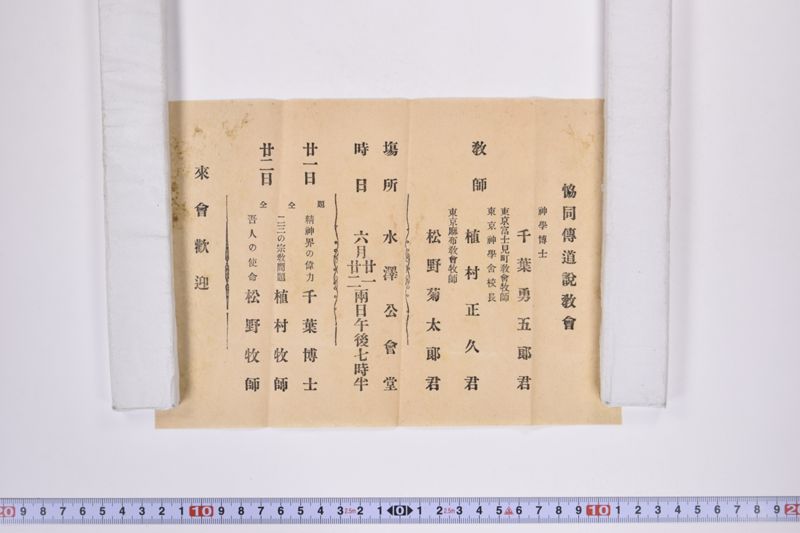 恊同傳道說敎會
神學博士
千葉勇五郞君
東京富士見町敎會牧師
東京神學舍校長
敎師 植村正久君
東京麻布敎會牧師
松野菊太郞君
塲所 水澤公會堂
時日 六月廿一廿二兩日午後七時半
廿一日 題 精神界の偉力 千葉博士
廿二日 仝 二三の宗敎問題 植村牧師
仝 吾人の使命 松野牧師
來會歡迎
20 9 8 7 6 5 4 3 2 1 10 9 8 7 6 5 4 3 2.5m 2 1 0 1 2 2.5m 3 4 5 6 7 8 9 10 1 2 3 4 5 6 7 8 9 20